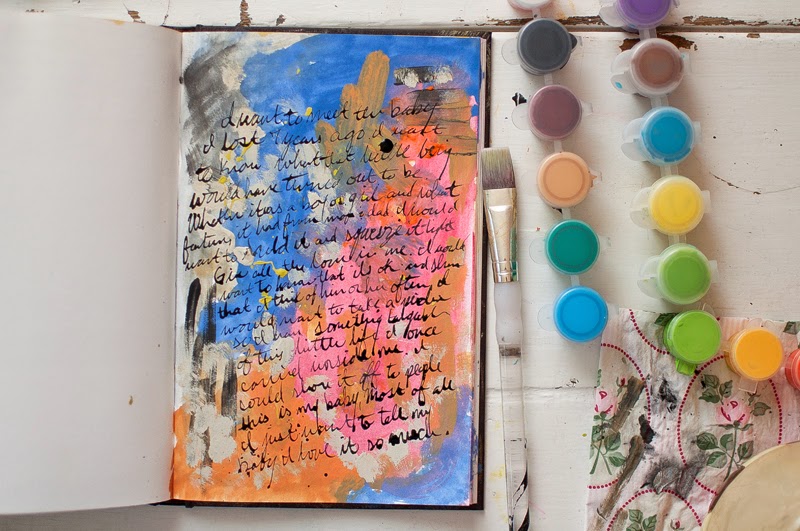 I want to meet the baby
I lost 9 years ago. I want
to know what that little being
would have turned out to be
Whether it was a boy or girl and what
features it had from me & dad. I would
want to hold it and squeeze it tight
Give all the love in me. I would
want to know that it's ok and show
that I think of him or her often. I
would want to take a picture
so I have something tangible
of this little life I once
carried inside me. I
would show it off to people
this is my baby. Most of all
I just want to tell my
baby I love it so much.